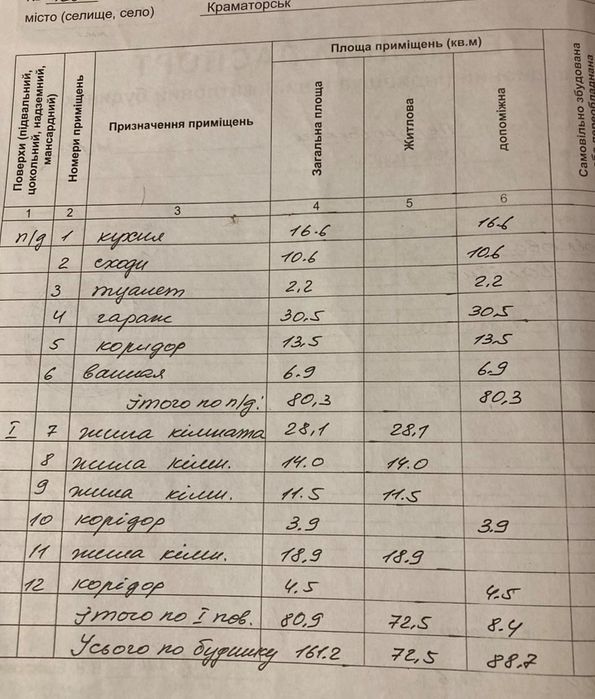 місто (селище, село) Краматорськ
Поверхи (підвальний, цокольний, надземний, мансардний)
Номери приміщень
Призначення приміщень
Площа приміщень (кв.м)
Загальна площа
Житлова
допоміжна
Самовільно збудована
або переобладнана
1 2 3 4 5 6
п/д 1 кухня 16.6 16.6
2 сходи 10.6 10.6
3 туалет 2,2 2,2
4 гараж 30.5 30.5
5 коридор 13.5 13.5
6 ванная 6.9 6.9
ітого по п/д: 80,3 80,3
I 7 жила кімната 28,1 28,1
8 жила кімн. 14.0 14.0
9 жила кімн. 11.5 11.5
10 корідор 3.9 3.9
11 жила кімн. 18.9 18.9
12 корідор 4.5 4.5
ітого по I пов. 80,9 72,5 8.4
Усього по будинку 161.2 72,5 88.7